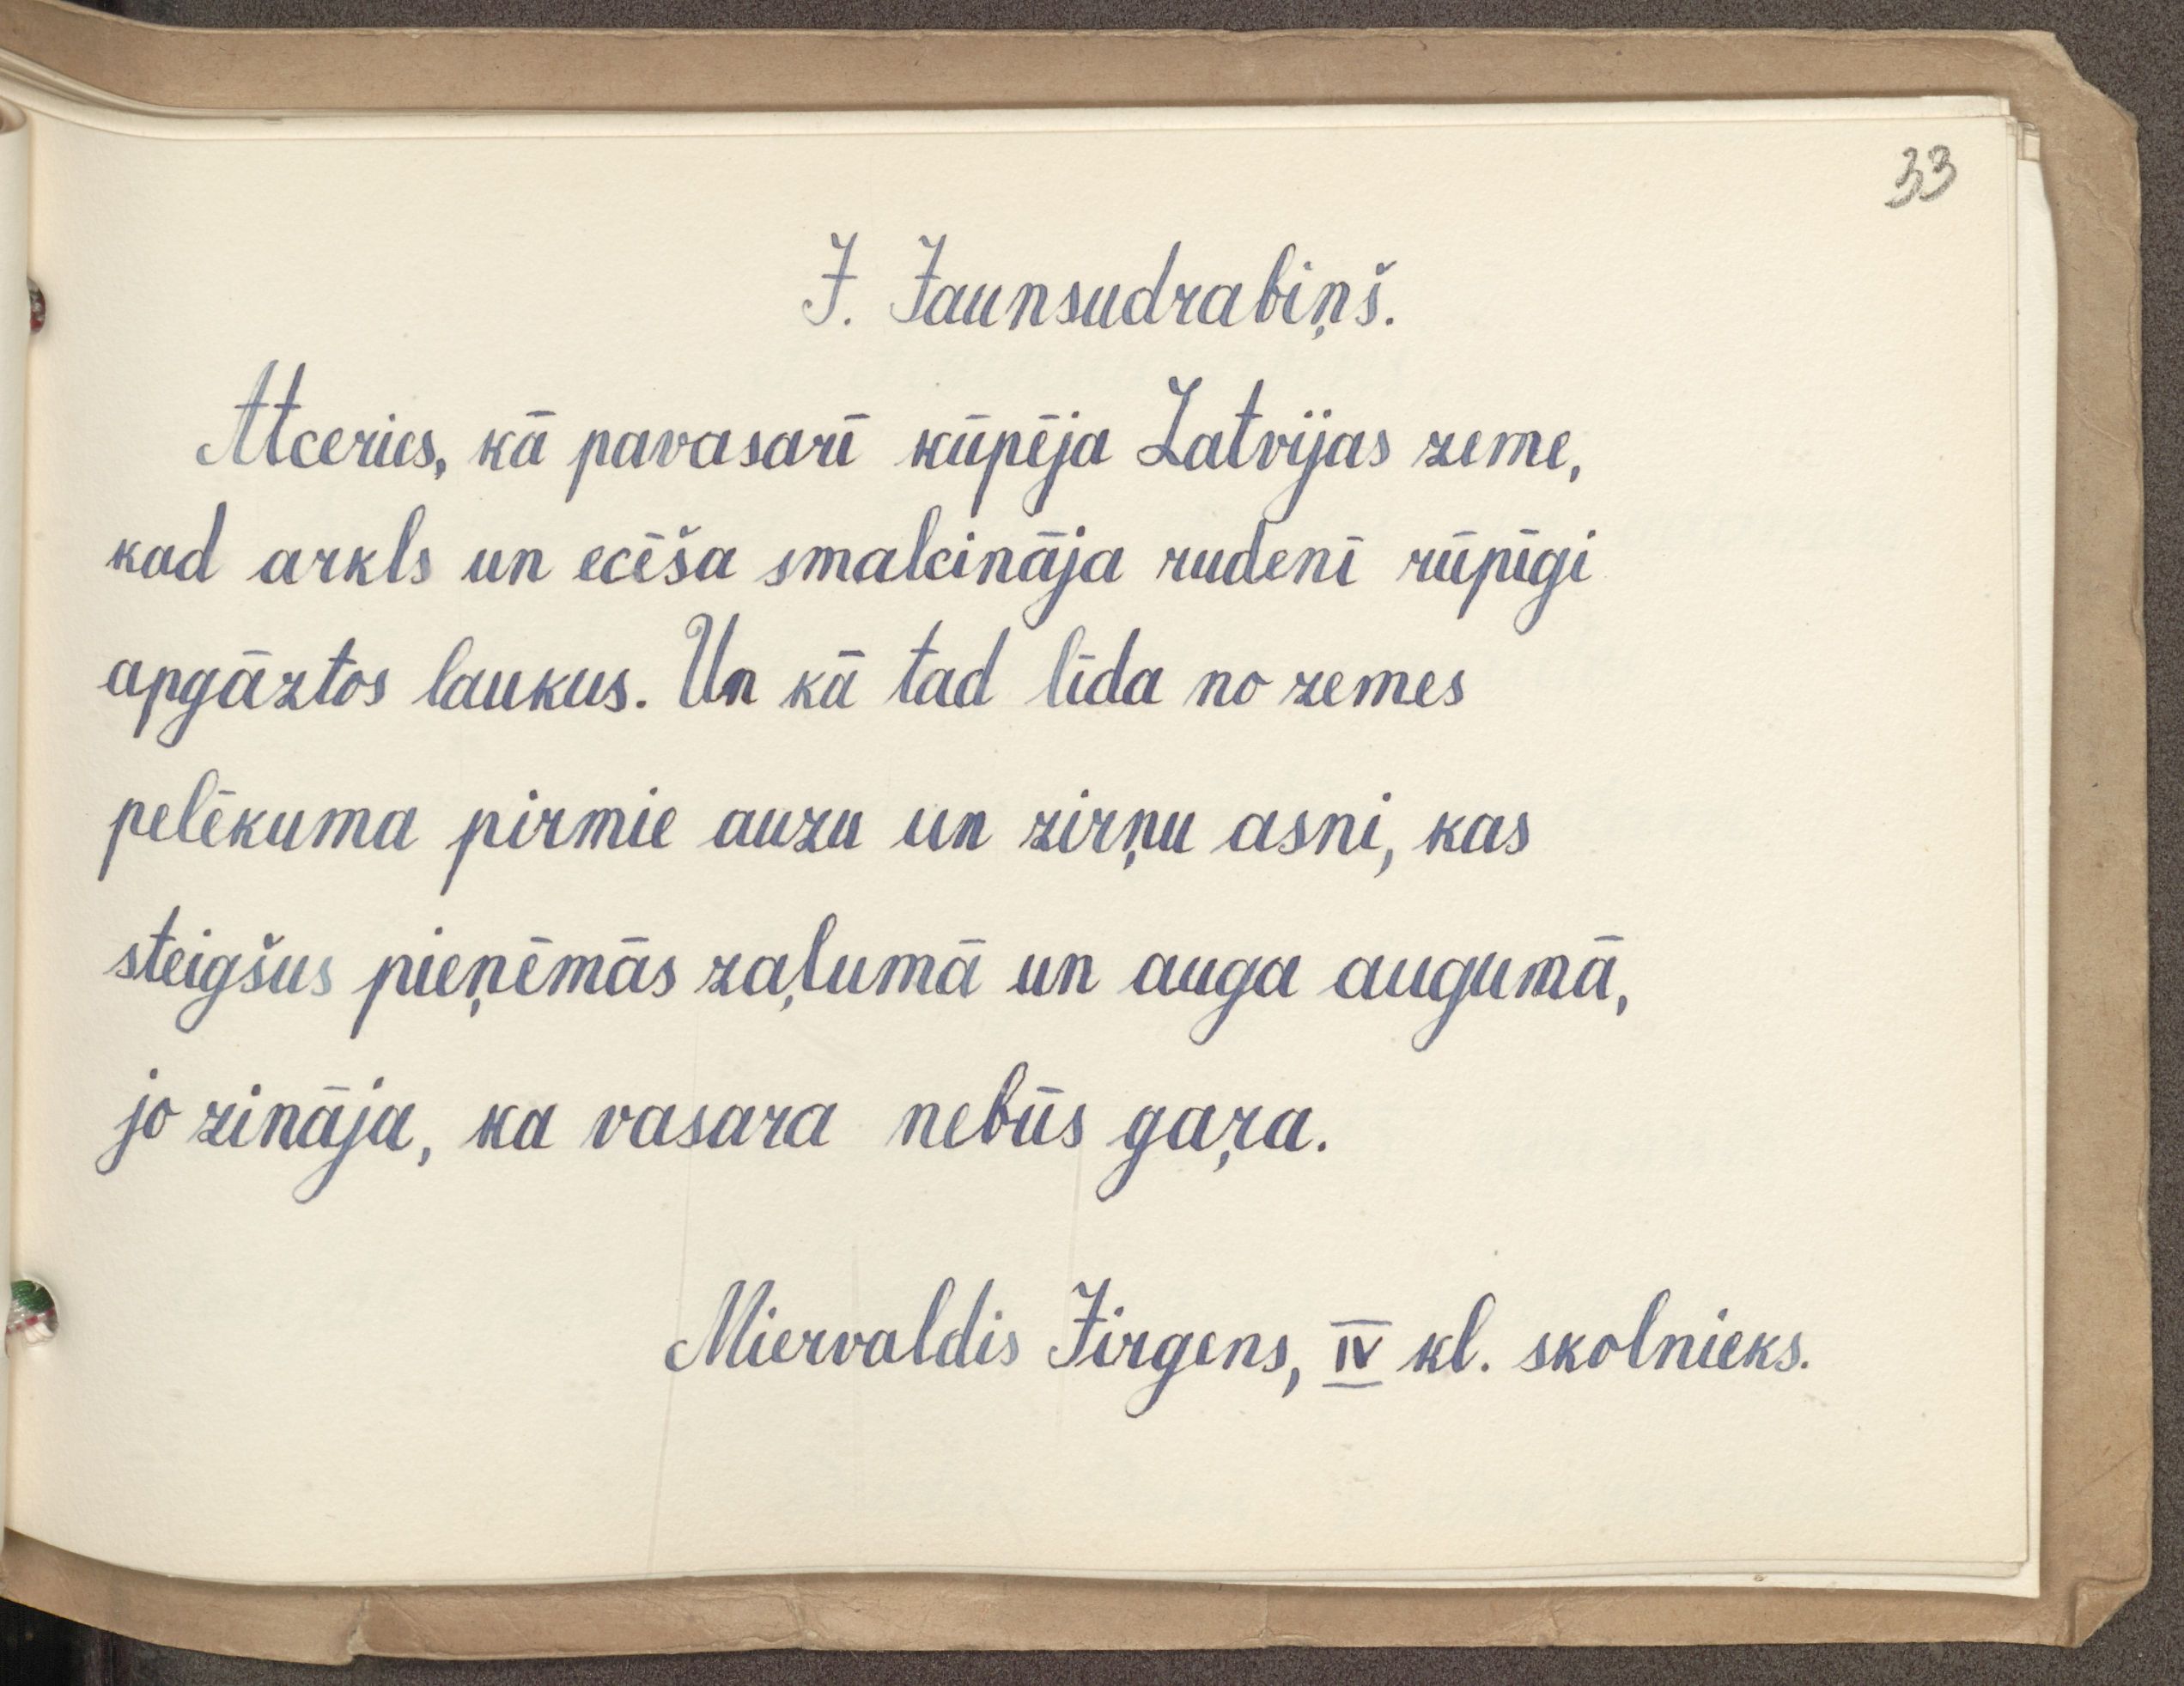 33
J. Jaunsudrabiņš.
Atceries, kā pavasarī kūpēja Latvijas zeme,
kad arkls un ecēša smalcināja rudenī rūpīgi
apgāztos laukus. Un kā tad līda no zemes
pelēkuma pirmie auzu un zirņu asni, kas
steigšus pieņēmās zaļumā un auga augumā,
jo zināja, ka vasara nebūs gaŗa.
Miervaldis Jirgens, IV kl. skolnieks.